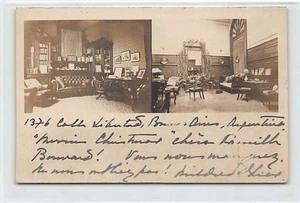 1376 Calle Libertad, Buenos Aires, Argentina
"Merrie Christmas" chère famille
Bonnard! Vous nous manquez.
Ne nous oubliez pas! Mildred